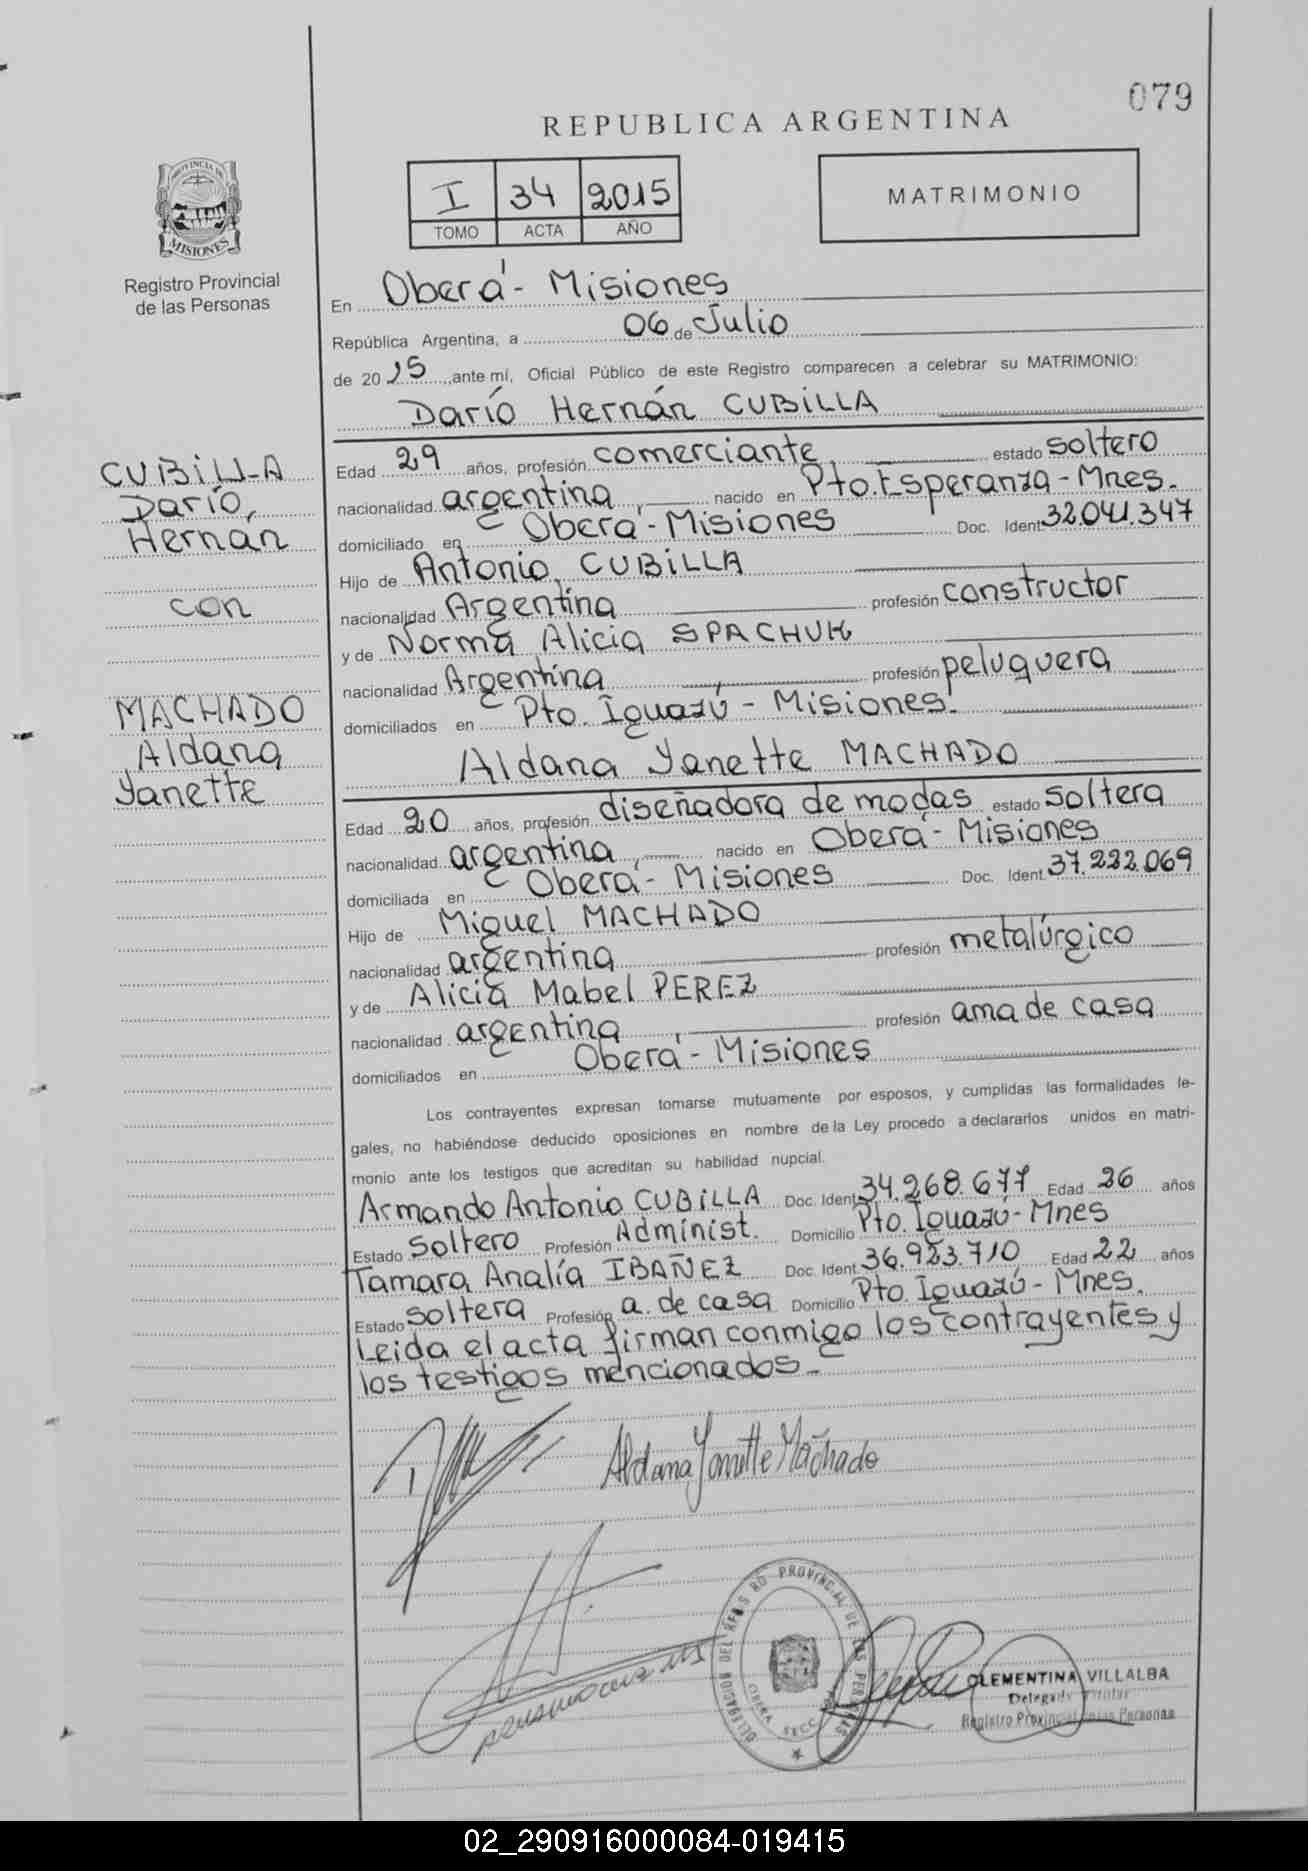 079
REPUBLICA ARGENTINA
I 34 2015
TOMO ACTA AÑO
MATRIMONIO
PROVINCIA DE
MISIONES
Registro Provincial
de las Personas
En Oberá - Misiones
República Argentina, a 06 de Julio
de 2015, ante mí, Oficial Público de este Registro comparecen a celebrar su MATRIMONIO:
Darío Hernán CUBILLA
CUBILLA
Darío,
Hernán
con
MACHADO
Aldana
Yanette
Edad 29 años, profesión comerciante estado soltero
nacionalidad argentina, nacido en Pto. Esperanza - Mnes.
domiciliado en Oberá - Misiones Doc. Ident. 32.041.347
Hijo de Antonio CUBILLA
nacionalidad Argentina profesión constructor
y de Norma Alicia SPACHUK
nacionalidad Argentina profesión peluquera
domiciliados en Pto. Iguazú - Misiones.
Aldana Yanette MACHADO
Edad 20 años, profesión diseñadora de modas estado soltera
nacionalidad argentina, nacido en Oberá - Misiones
domiciliada en Oberá - Misiones Doc. Ident. 37.222.069
Hijo de Miguel MACHADO
nacionalidad argentina profesión metalúrgico
y de Alicia Mabel PEREZ
nacionalidad argentina, profesión ama de casa
domiciliados en Oberá - Misiones
Los contrayentes expresan tomarse mutuamente por esposos, y cumplidas las formalidades le-
gales, no habiéndose deducido oposiciones en nombre de la Ley procedo a declararlos unidos en matri-
monio ante los testigos que acreditan su habilidad nupcial.
Armando Antonio CUBILLA Doc. Ident. 34.268.677 Edad 26 años
Estado soltero Profesión Administ. Domicilio Pto. Iguazú - Mnes
Tamara Analía IBAÑEZ Doc. Ident. 36.923.710 Edad 22 años
Estado soltera Profesión a. de casa Domicilio Pto. Iguazú - Mnes.
Leida el acta firman conmigo los contrayentes y
los testigos mencionados.-
Aldana Yanette Machado
DELEGACION DEL REGISTRO PROVINCIAL DE LAS PERSONAS
OBERA SECC.
CLEMENTINA VILLALBA
Delegada Titular
Registro Provincial de las Personas
02_290916000084-019415